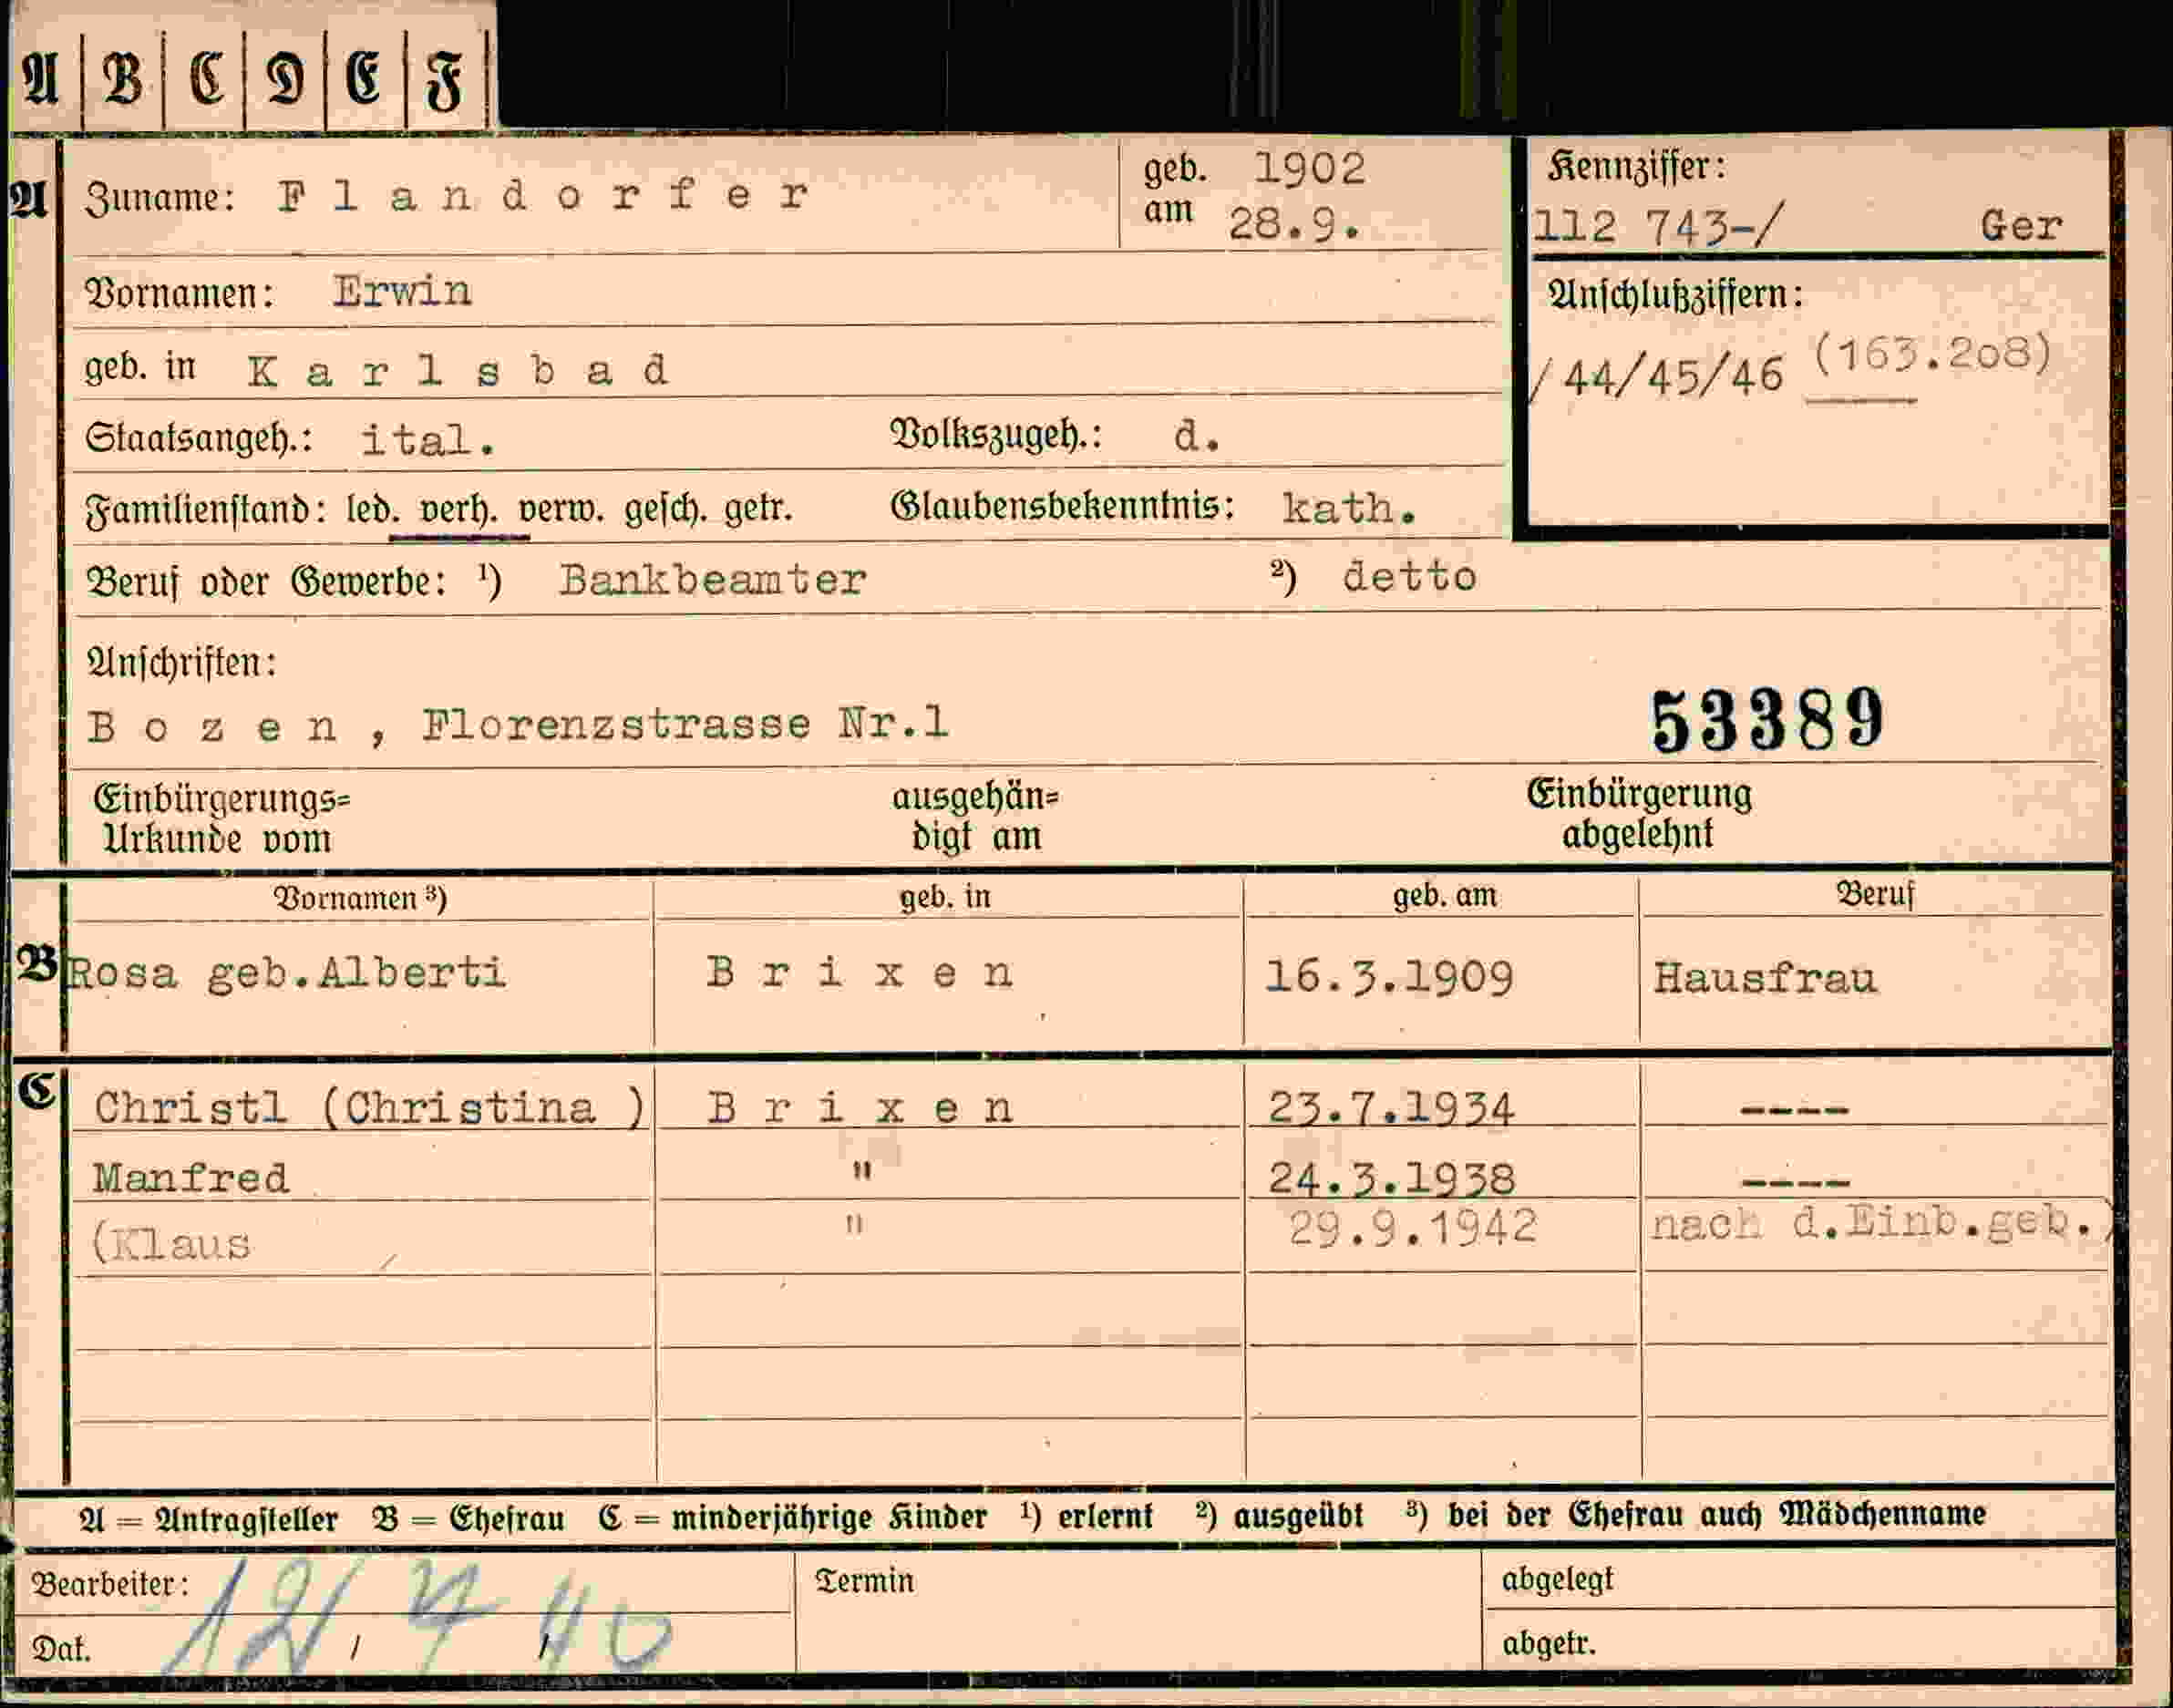 A B C D E F
A Zuname: Flandorfer geb. am 1902 28.9. Kennziffer:
112 743-/ Ger
Vornamen: Erwin Anschlußziffern:
geb. in Karlsbad /44/45/46 (163.208)
Staatsangeh.: ital. Volkszugeh.: d.
Familienstand: led. verh. verw. gesch. getr. Glaubensbekenntnis: kath.
Beruf oder Gewerbe: ¹) Bankbeamter ²) detto
Anschriften:
Bozen, Florenzstrasse Nr.1 53389
Einbürgerungs= ausgehän= Einbürgerung
Urkunde vom digt am abgelehnt
Vornamen ³) geb. in geb. am Beruf
B Rosa geb.Alberti Brixen 16.3.1909 Hausfrau
C Christl (Christina ) Brixen 23.7.1934 ----
Manfred " 24.3.1938 ----
(Klaus " 29.9.1942 nach d.Einb.geb.)
A = Antragsteller B = Ehefrau C = minderjährige Kinder ¹) erlernt ²) ausgeübt ³) bei der Ehefrau auch Mädchenname
Bearbeiter: Termin abgelegt
Dat. 12/ 7 / 40 abgetr.